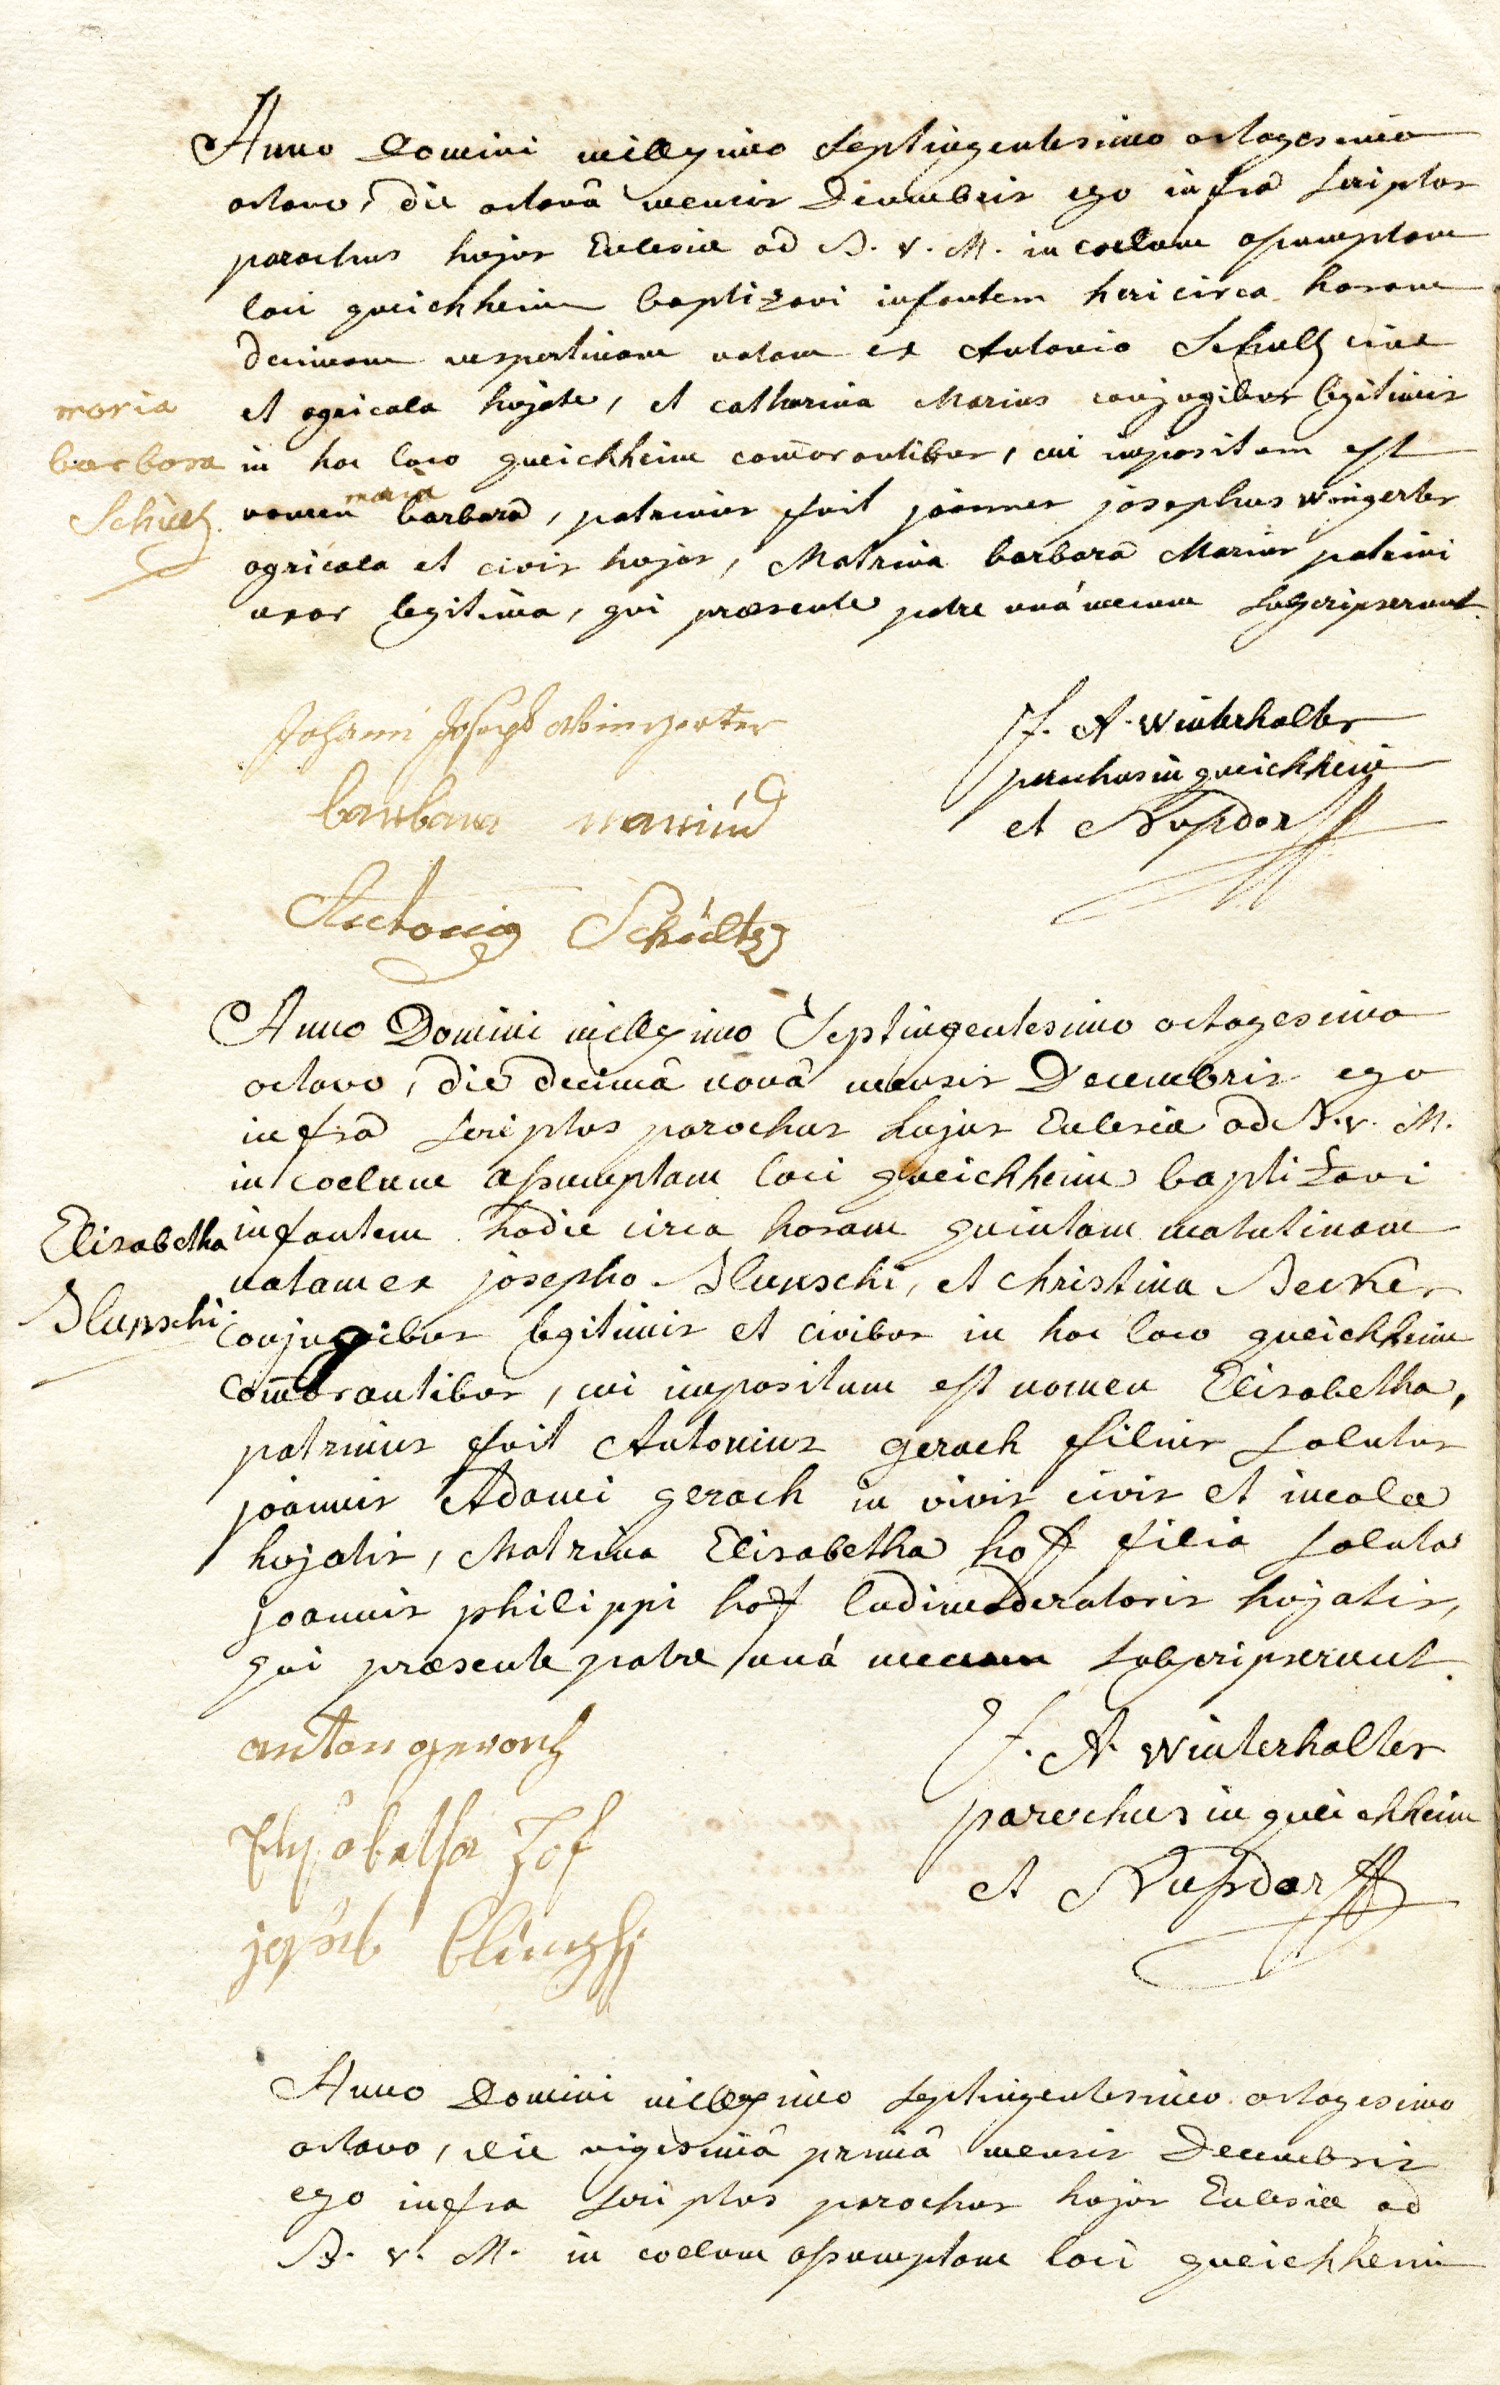 Anno Domini millesimo Septingentesimo octogesimo
octavo, die octavâ mensis Decembris ego infra Scriptus
parochus hujus Eclesiæ ad B. v. M. in coelum assumptam
loci queichheim baptizavi infantem heri circa horam
decimam vespertinam natam ex Antonio Schultz cive
et agricola hujate, et catharina Marius conjugibus legitimis
maria
barbara
Schultz.
in hoc loco queichheim com̄orantibus, cui impositum est
nomen maria barbara, patrinus fuit joannes josephus wingerter
agricola et civis hujas, Matrina barbara Marius patrini
uxor legitima, qui præsente patre unâ mecum subscripserunt.
Johann Joseph Wingerter
barbara mariusß
Antonig Schültz
J. A. Winterhalter
parochus in queichheim
et Nussdorff
Anno Domini millesimo Septingentesimo octogesimo
octavo, die decimâ nonâ mensis Decembris ego
infra Scriptus parochus hujus Eclesiæ ad B. v. M.
in coelum assumptam loci queichheim baptizavi
Elisabetha
Blunschi.
infantem hodie circa horam quintam matutinam
natam ex josepho Blunschi, et Christina Becker
Conjugibus legitimis et civibus in hoc loco queichheim
Com̄orantibus, cui impositum est nomen Elisabetha,
patrinus fuit Antonius gerach filius solutus
joannis Adami gerach in vivis civis et incolæ
hujatis, Matrina Elisabetha hoff filia soluta
joannis philippi hoff ludimoderatoris hujatis,
qui præsente patre unâ mecum subscripserunt.
anton gerach
Elisabetha Hof
joseb blunschi
J. A. Winterhalter
parochus in queichheim
et Nussdorff
Anno Domini millesimo septingentesimo octogesimo
octavo, die vigesimâ primâ mensis Decembris
ego infra Scriptus parochus hujus Eclesiæ ad
B. v. M. in coelum assumptam loci queichheim